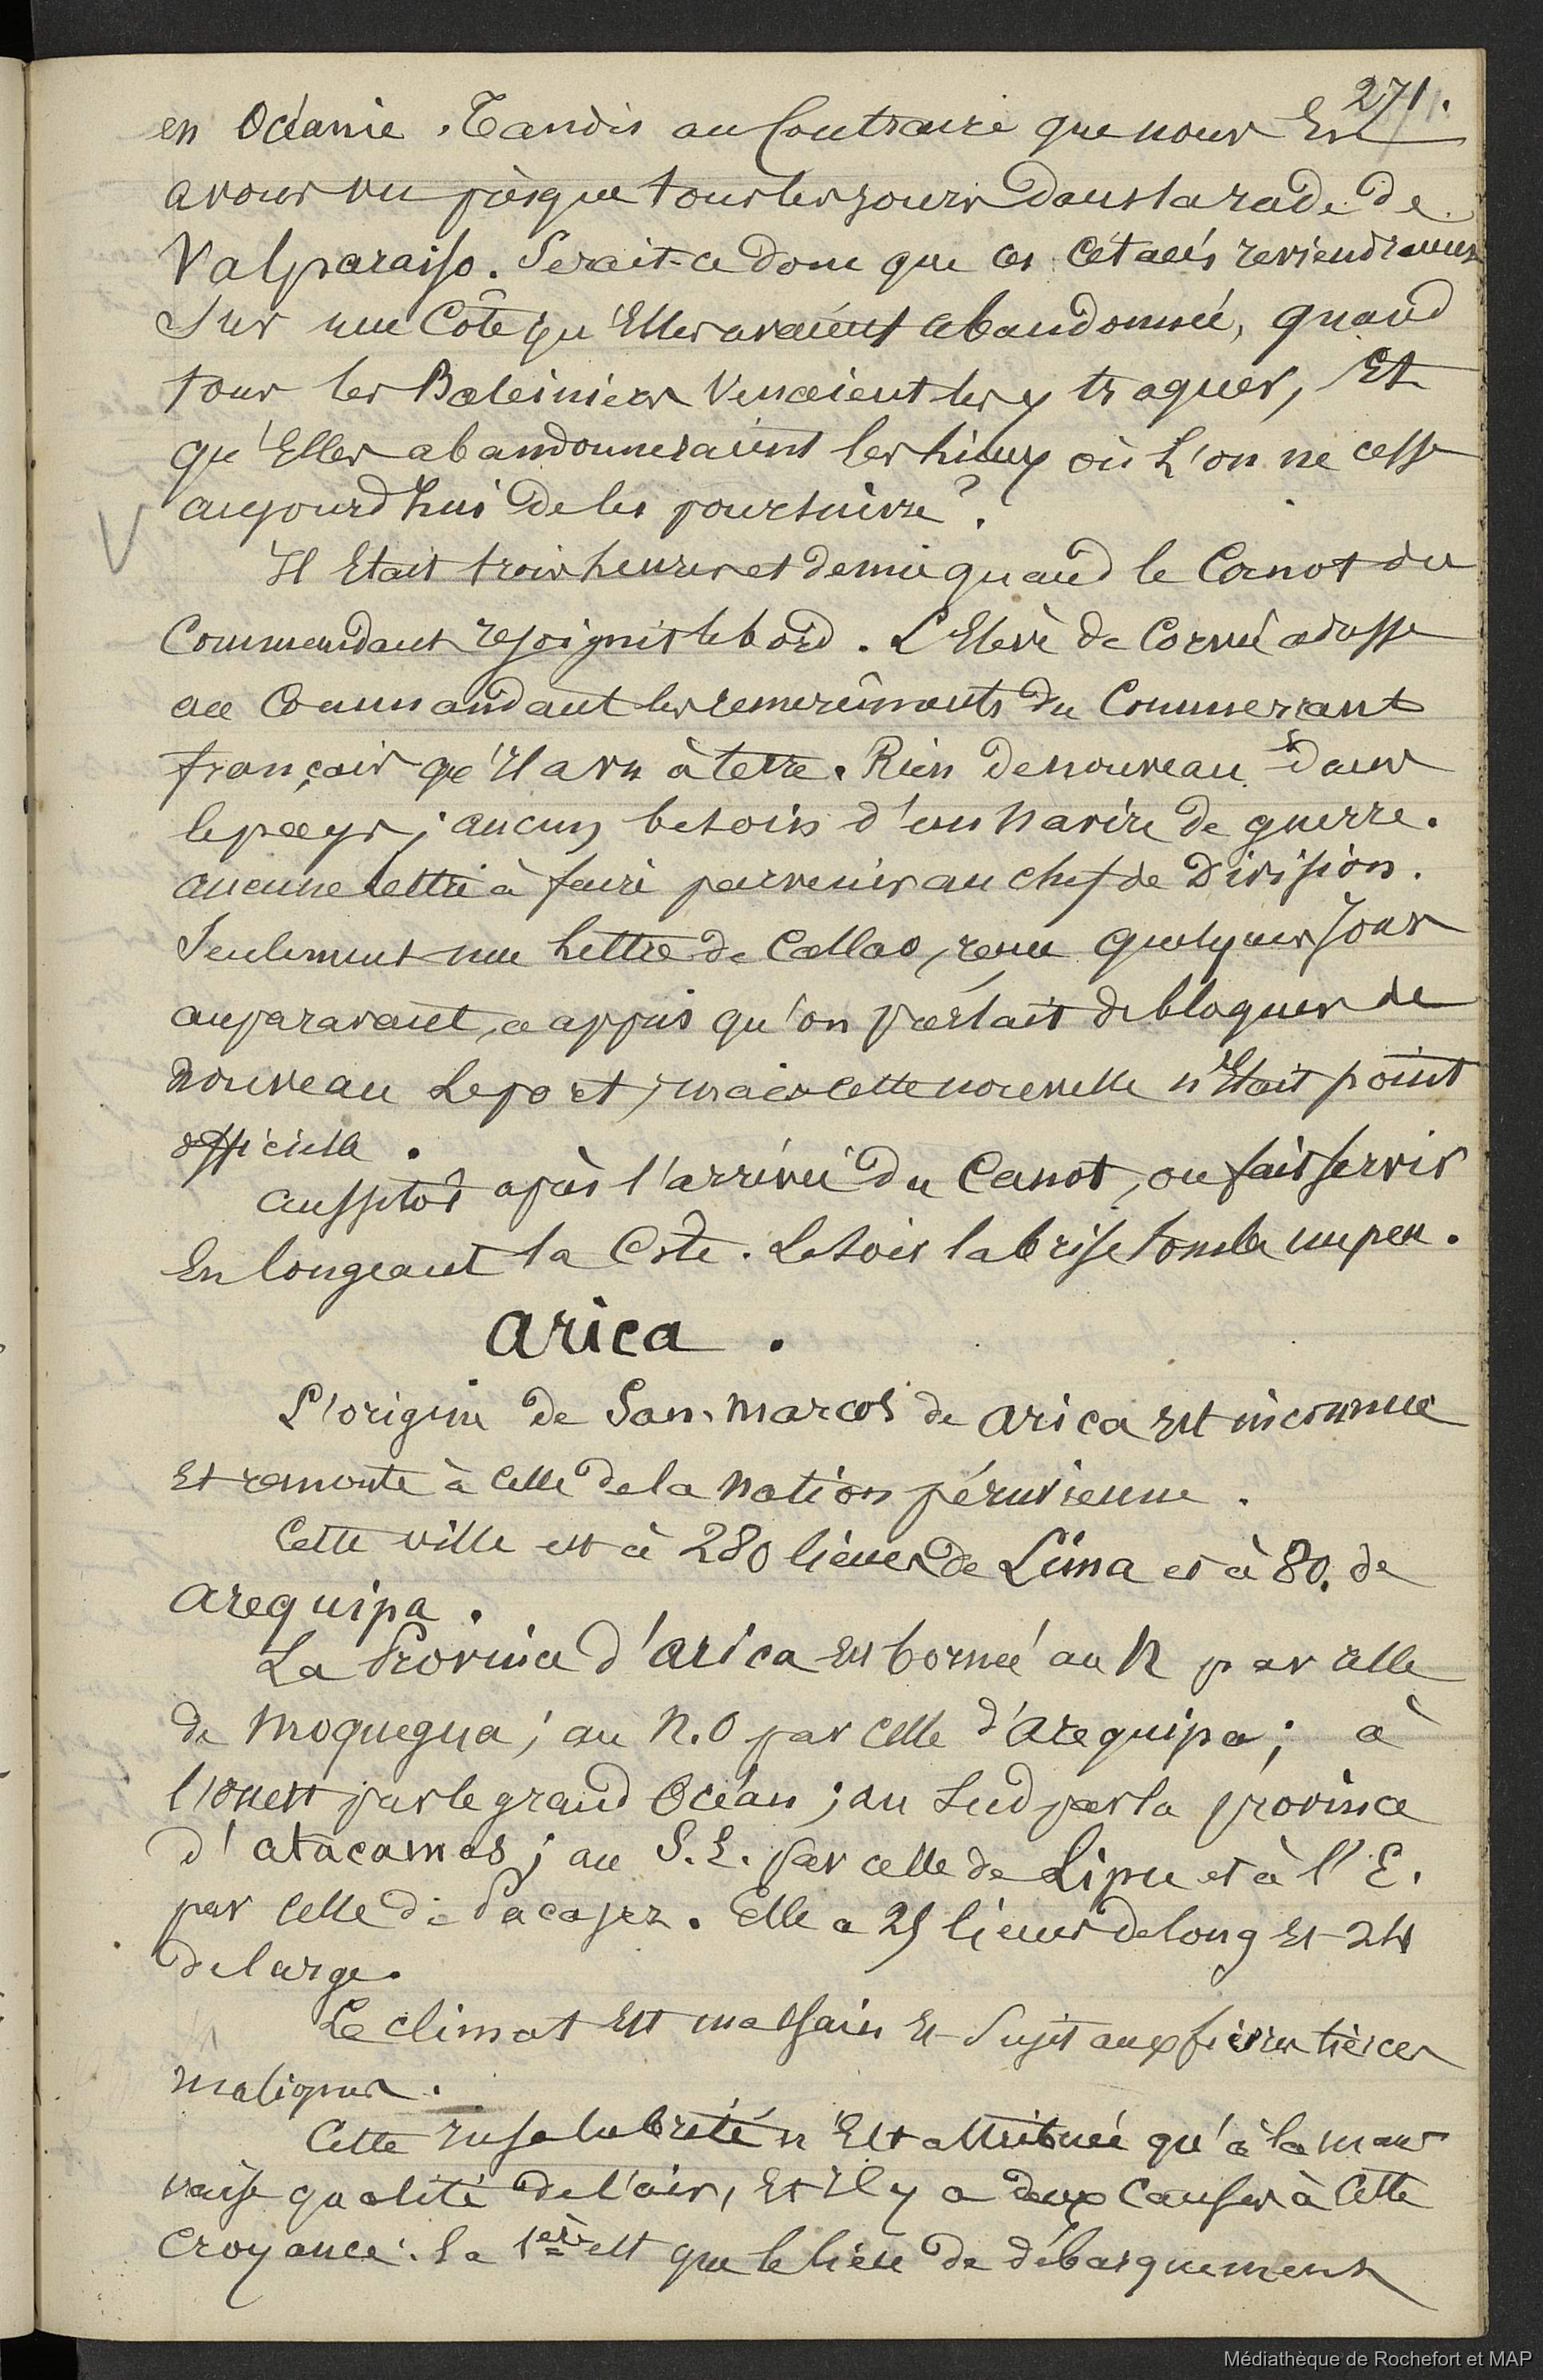 271.
en Océanie. Tandis au Contraire que nous En
avons vu presque tous les jours dans la rade de
Valparaiso. Serait-ce donc que ces Cétacés reviendraient
Sur une Côte qu'Elles avaient abandonnée, quand
tous les Baleiniers Venaient les y traquer, Et
qu'Elles abandonneraient les lieux où L'on ne cesse
aujourd'hui de les poursuivre ?
V
Il Etait trois heures et demie quand le Canot du
Commandant rejoignit le bord. L'Elève de Corvée adresse
au Commandant les remercîments du Commerçant
français qu'Il a vu à terre. Rien de nouveau dans
le pays ; aucun besoin d'un Navire de guerre.
aucune lettre à faire parvenir au chef de Division.
Seulement une Lettre de Callao, reçue quelques Jours
auparavant, a appris qu'on parlait de bloquer de
nouveau Le port, mais cette nouvelle n'Etait point
officielle.
aussitôt après l'arrivée du Canot, on fait servir
En longeant la Côte. Le soir la brise tombe un peu.
Arica.
L'origine de San-Marcos de Arica Est inconnue
Et remonte à Celle de la Nation péruvienne.
Cette ville est à 280 lieues de Lima et à 80. de
Arequipa.
La Province d'Arica Est bornée au N par celle
de Moquegua ; au N.O par Celle d'Arequipa ; à
l'ouest par le grand Océan ; au Sud par la province
d'atacamas ; au S.E. par celle de Lipu et à l'E.
par Celle de Pacajez. Elle a 25 lieues de long Et 24
de large.
Le climat Est malsain Et Sujet aux fièvres tierces
malignes.
Cette Insalubrité n'Est attribuée qu'à la mau
vaise qualité de l'air, Et Il y a deux Causes à Cette
Croyance : la 1ère est que le lieu de débarquement
Médiathèque de Rochefort et MAP